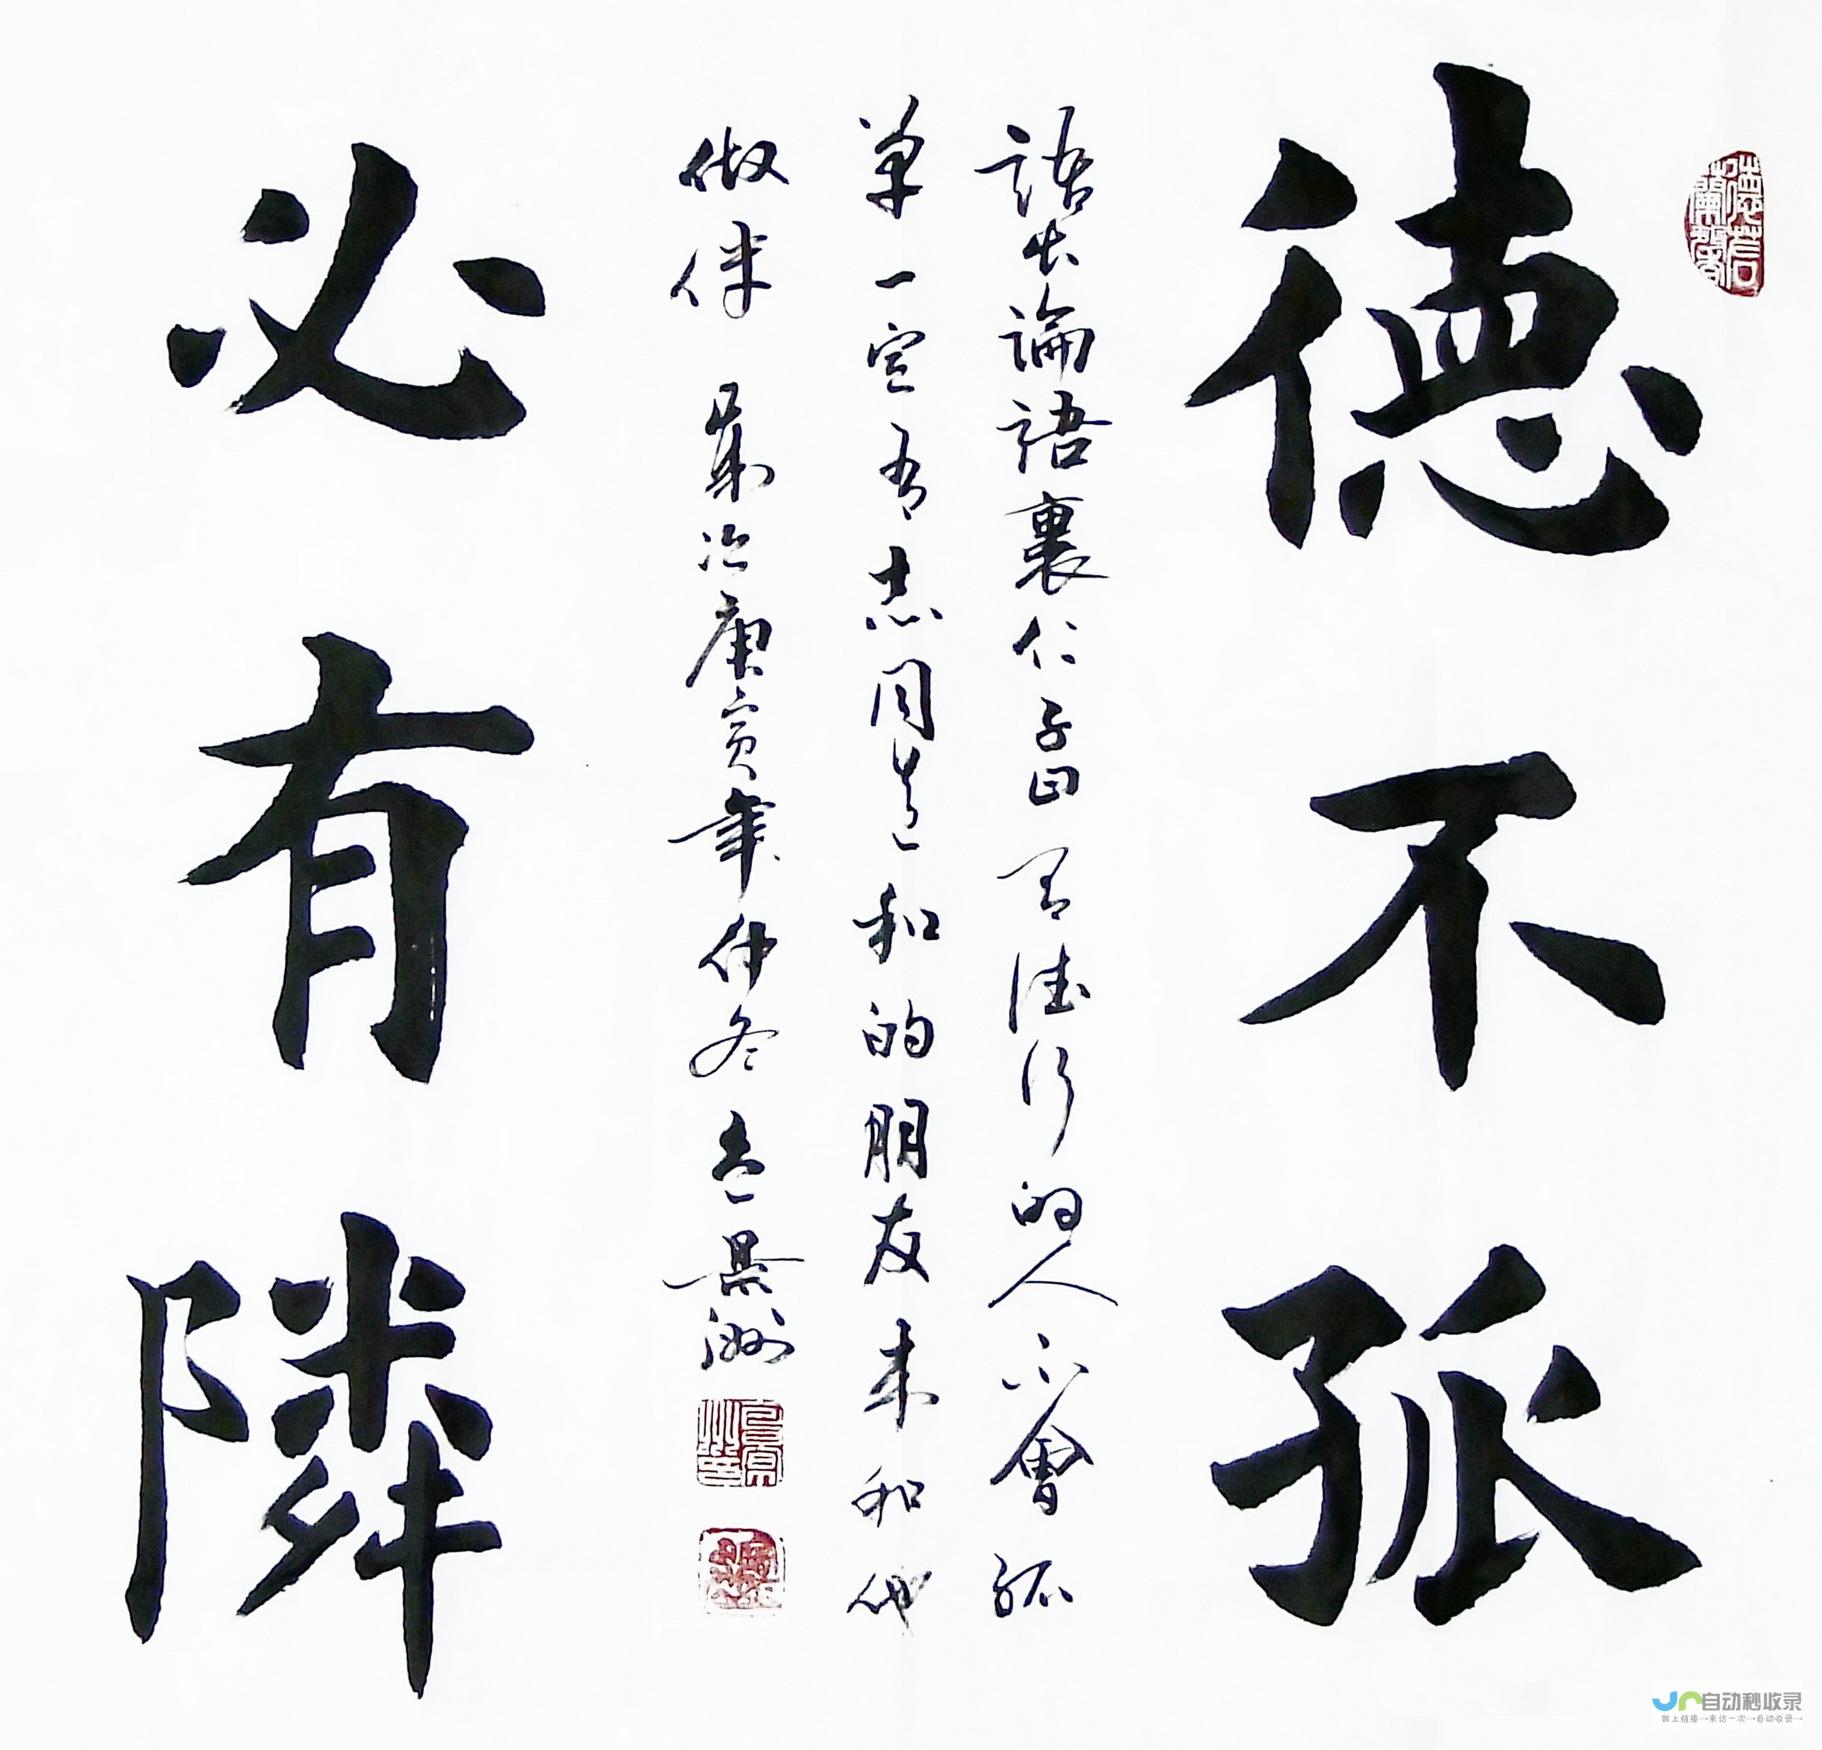 德不孤
語出論語裏仁子曰有德行的人不會孤
單一定有志同道和的朋友来和他
做伴 歲次庚寅年仲冬 吕景洲
必有隣
德若蘭馨
自动秒收录
做上链接→来访一次→自动收录→